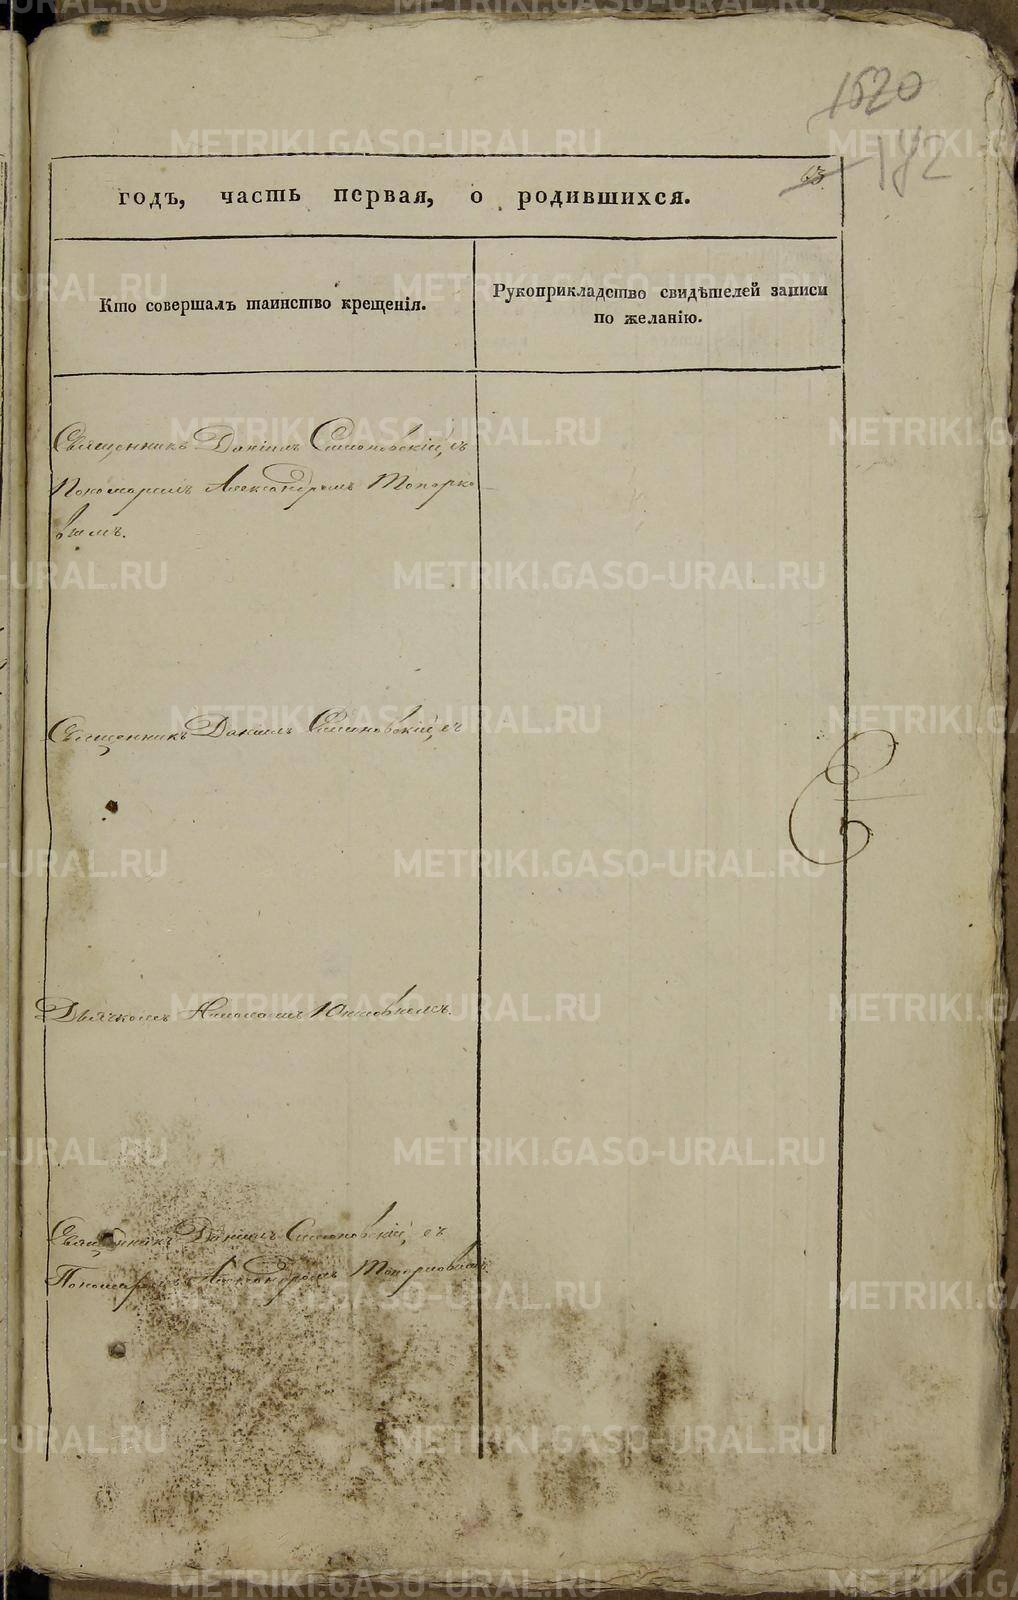 1620
192
63.
годъ, часть первая, о родившихся.
Кто совершалъ таинство крещенія.
Рукоприкладство свидѣтелей записи
по желанію.
Священникъ Даніилъ Симоновскій, съ
Пономаремъ Александромъ Топорко
вымъ.
Священникъ Даніилъ Симоновскій, съ
Дьячкомъ Николаемъ
Священникъ Даніилъ Симоновскій, съ
Пономаремъ Александромъ
METRIKI.GASO-URAL.RU